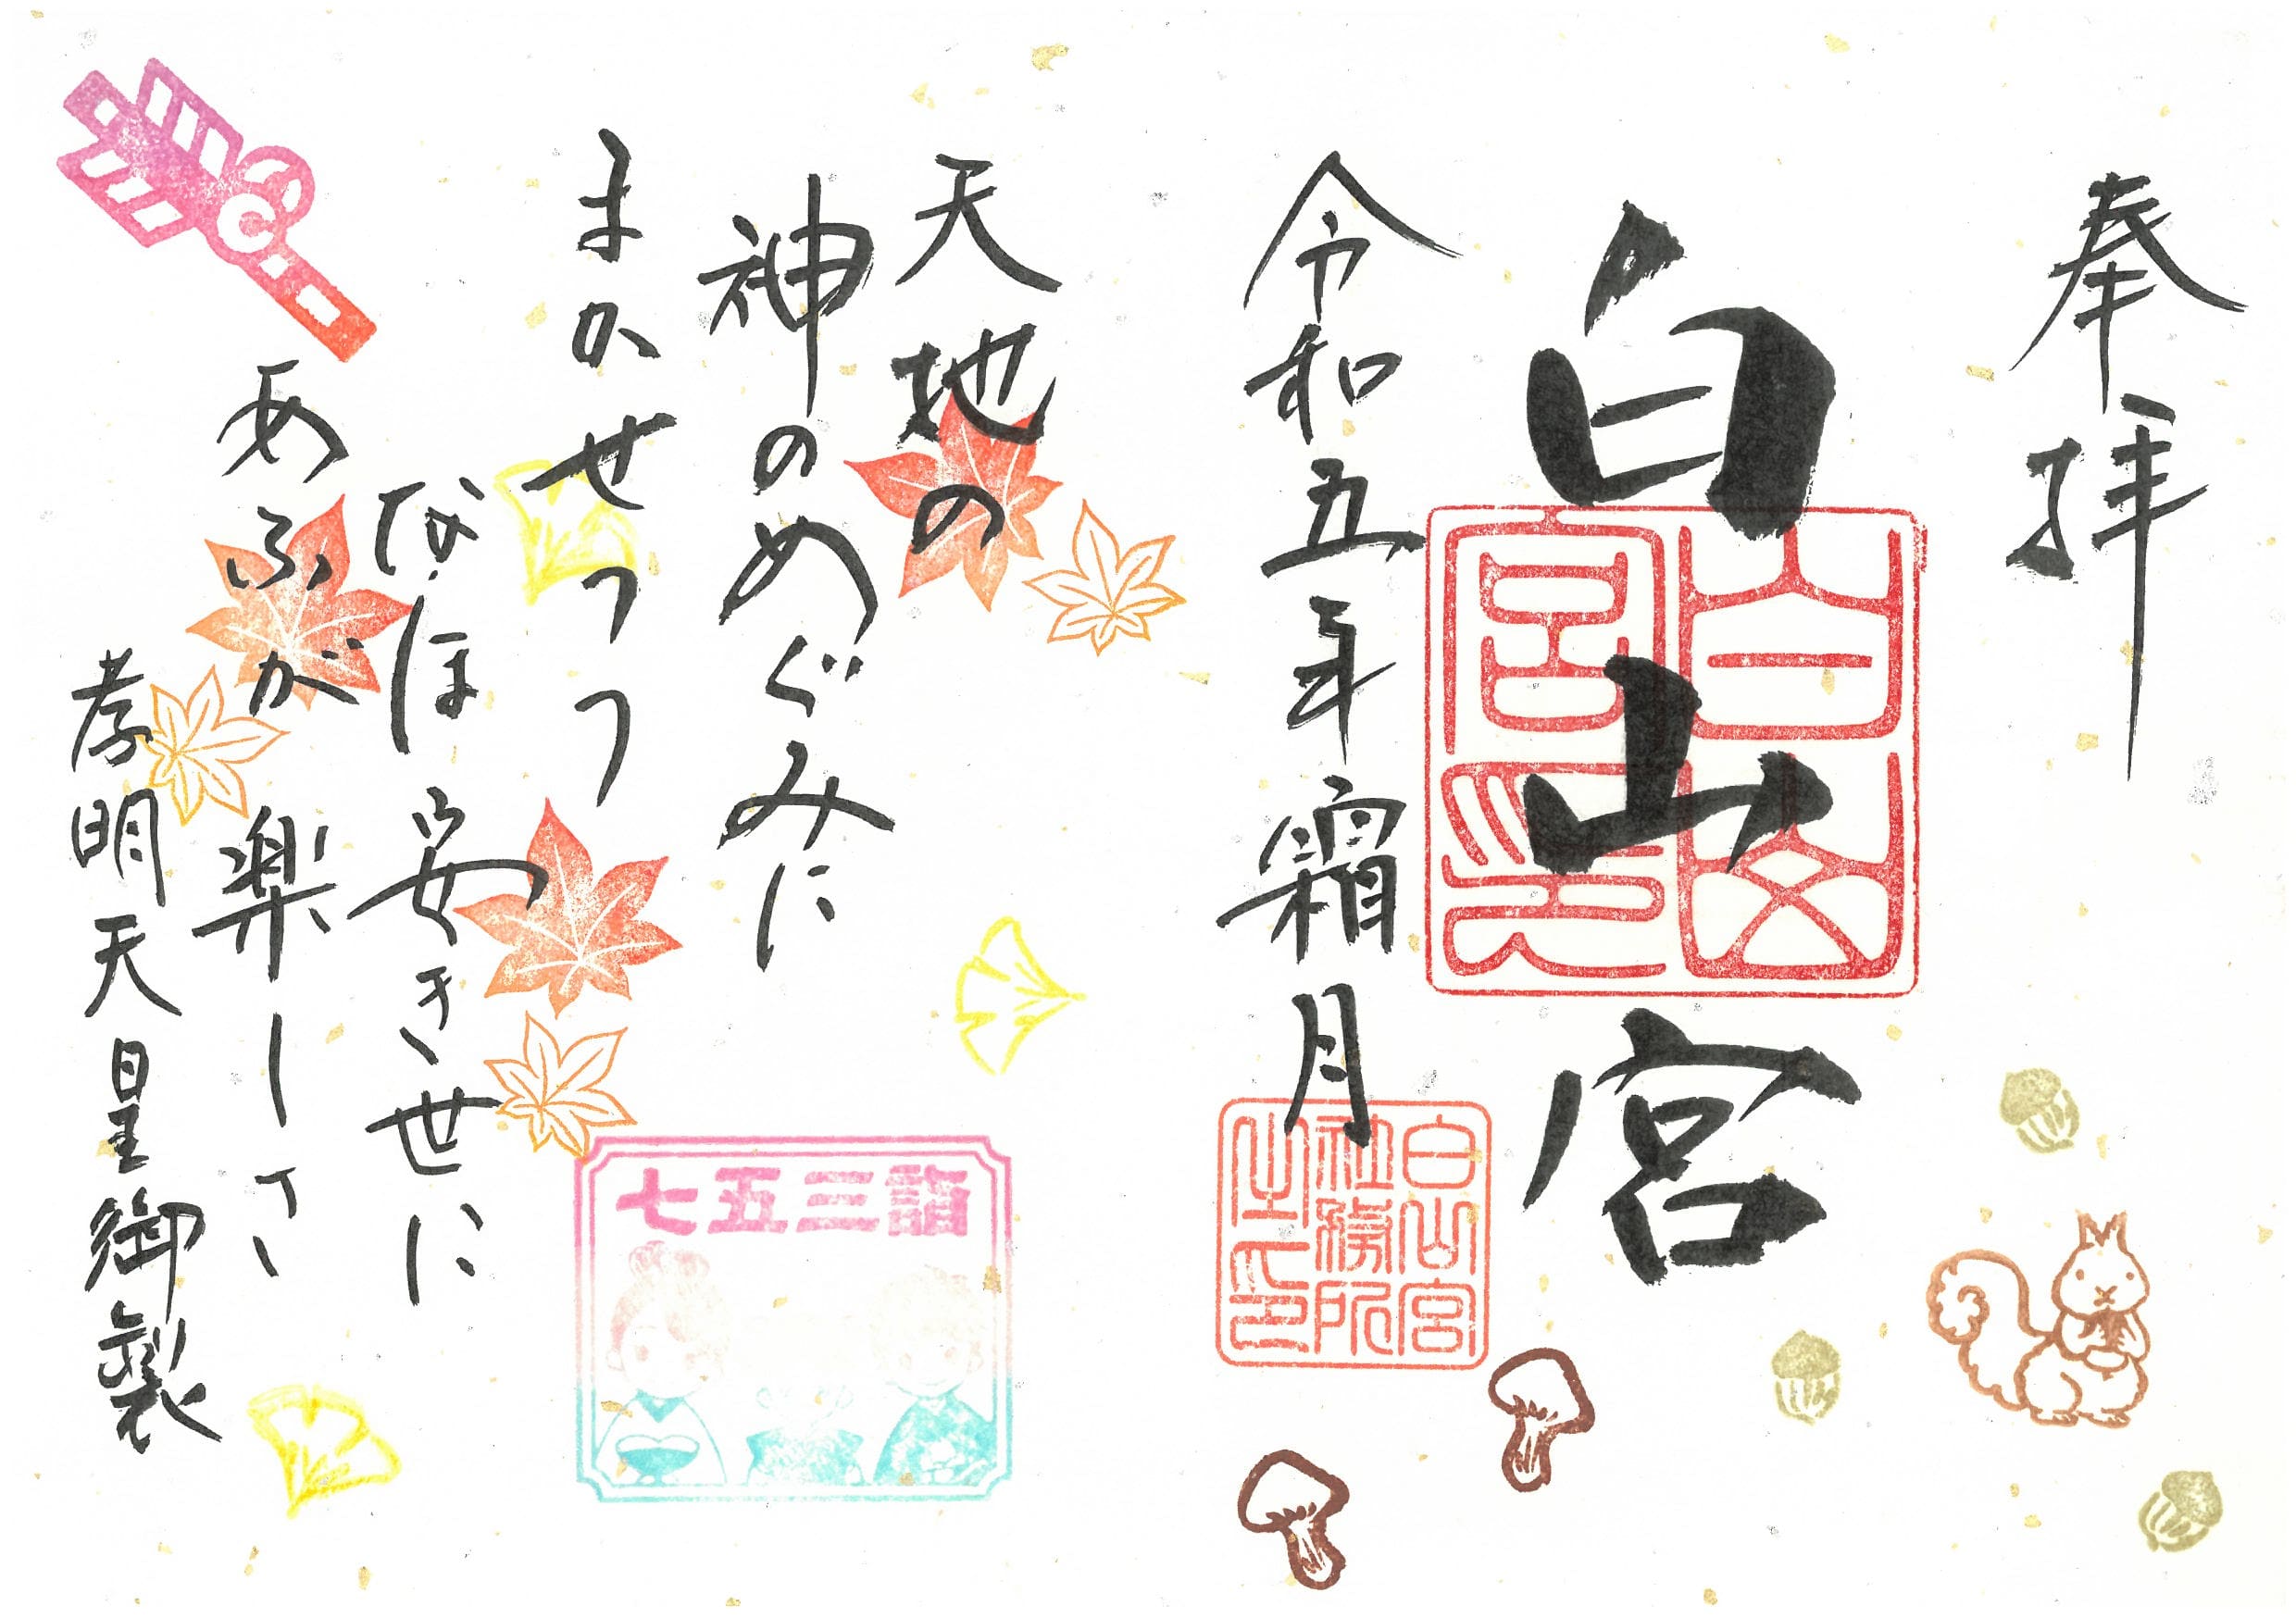 奉拝
白山宮
白山宮印
令和五年霜月
白山宮
社務所
之印
天地の
神のめぐみに
まかせつつ
なほ安きせに
あふが楽しさ
孝明天皇御製
七五三詣